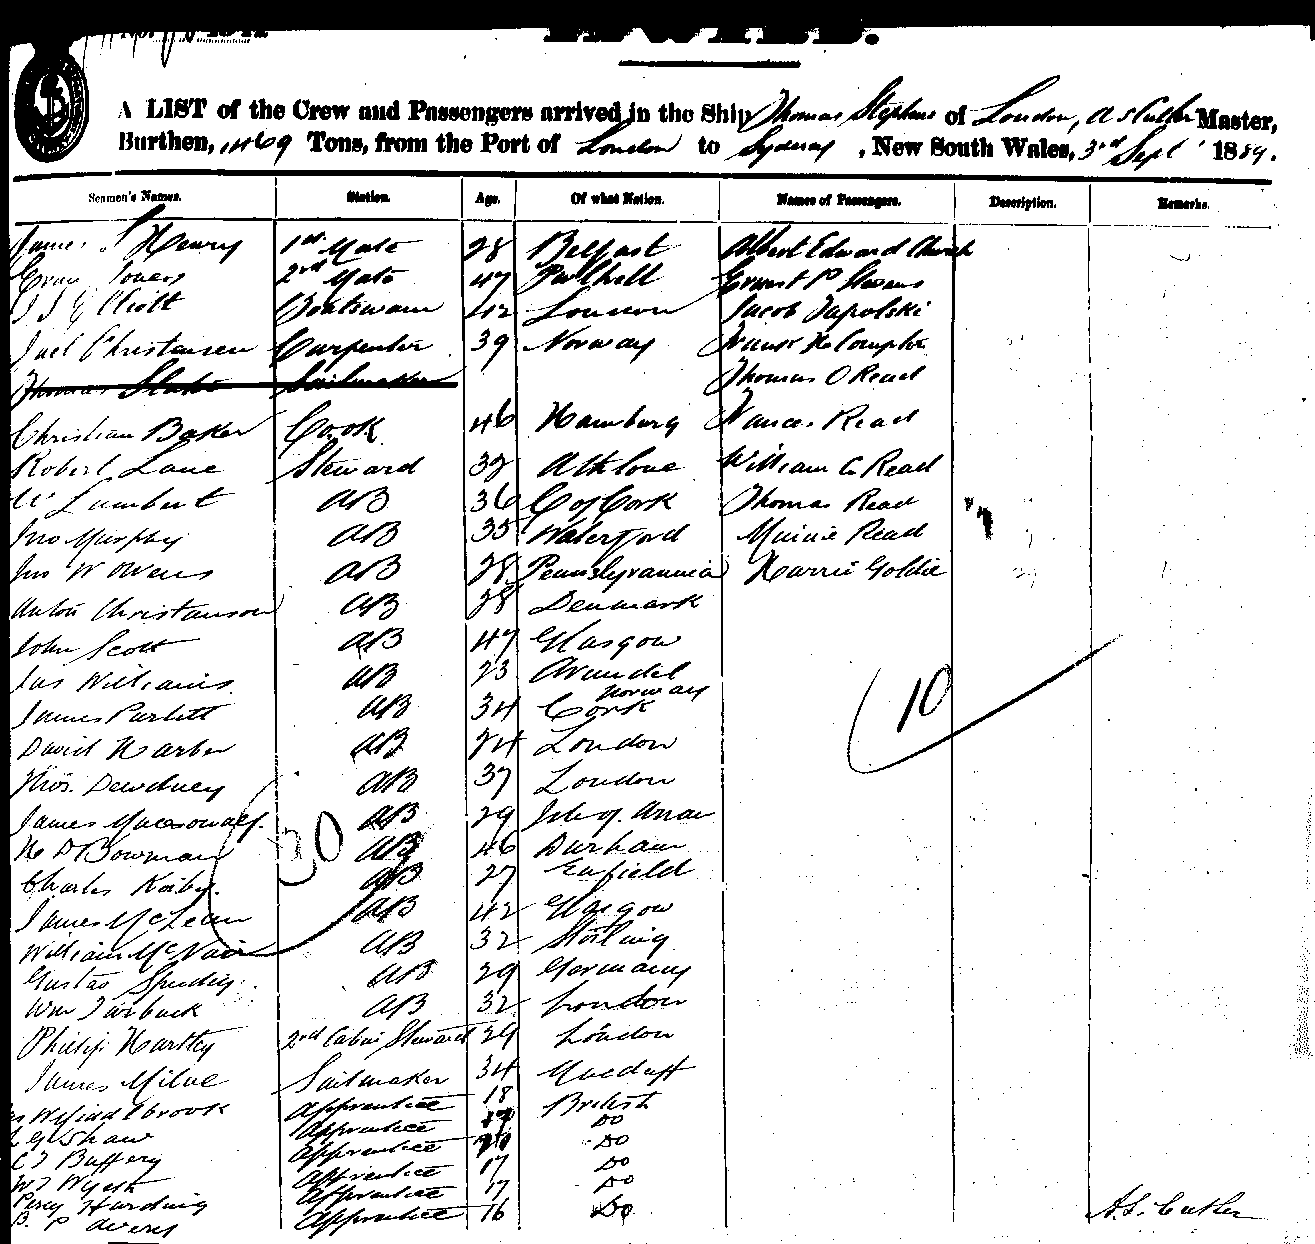 A LIST of the Crew and Passengers arrived in the Ship Thomas Stephens of London, A S Cutler Master,
Burthen, 1469 Tons, from the Port of London to Sydney, New South Wales, 3rd Sept 1889.
Seamen's Names. Station. Age. Of what Nation. Names of Passengers. Description. Remarks.
James S Henry 1st Mate 28 Belfast Albert Edward Church
2nd Mate 47 Pwllheli Ernest P Stevens
Elliott Boatswain 42 London Jacob Tapolski
Joel Christensen Carpenter 39 Norway Compton
Thomas Sailmaker Thomas O Read
Christian Baker Cook 46 Hamburg Frances Read
Robert Lane Steward 32 Athlone William C Read
W Lambert AB 36 Co of Cork Thomas Read
Jno Murphy AB 35 Waterford Minnie Read
Jno W Owens AB 28 Pennslyvannia Harrie Goldie
Anton Christanson AB 28 Denmark
John Scott AB 47 Glasgow
Jas Williams AB 23 Arundel
Norway
James Parlett AB 34 Cork
David Harber AB 24 London
10
Thos. Dewdney AB 37 London
James AB 29 Isle of Arran
30
H D Bowman AB 46 Durham
Charles Kirby. AB 27 Enfield
James McLean AB 42 Glasgow
William McNair AB 32 Stirling
Gustav AB 29 Germany
Wm Fairback AB 32 London
Phillip Hartley 2nd Cabin Steward 24 London
James Milne Sailmaker 34 Macduff
Apprentice 18 British
Shaw Apprentice 17 Do
Buffery Apprentice Do
W J Wyeth Apprentice 17 Do
Percy Harding Apprentice 17 Do
B. P Avery Apprentice 16 Do
A. S. Cutler